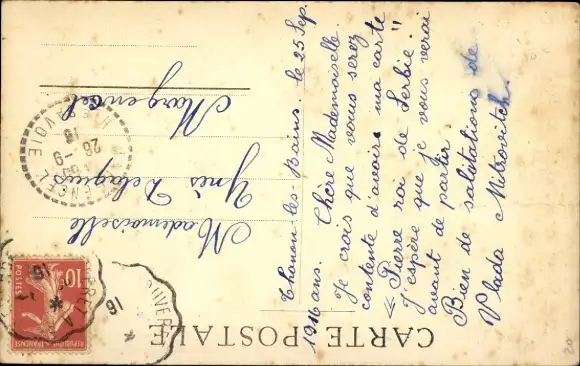 CARTE POSTALE
Thonon-les-Bains. le 25 Sep.
1916 ans. Chère Mademoiselle
Je crois que vous serez
contente d'avoire ma carte
« Pierre roi de Serbie "
J'espère que je vous verai
avant de partir.
Bien de salutations de
Vlada Mitrovitch.
Mademoiselle
Ynès
Margencel
MARGENCEL
26 - 9
16
HTE SAVOIE
10
POSTES
REPUBLIQUE FRANÇAISE
16
20